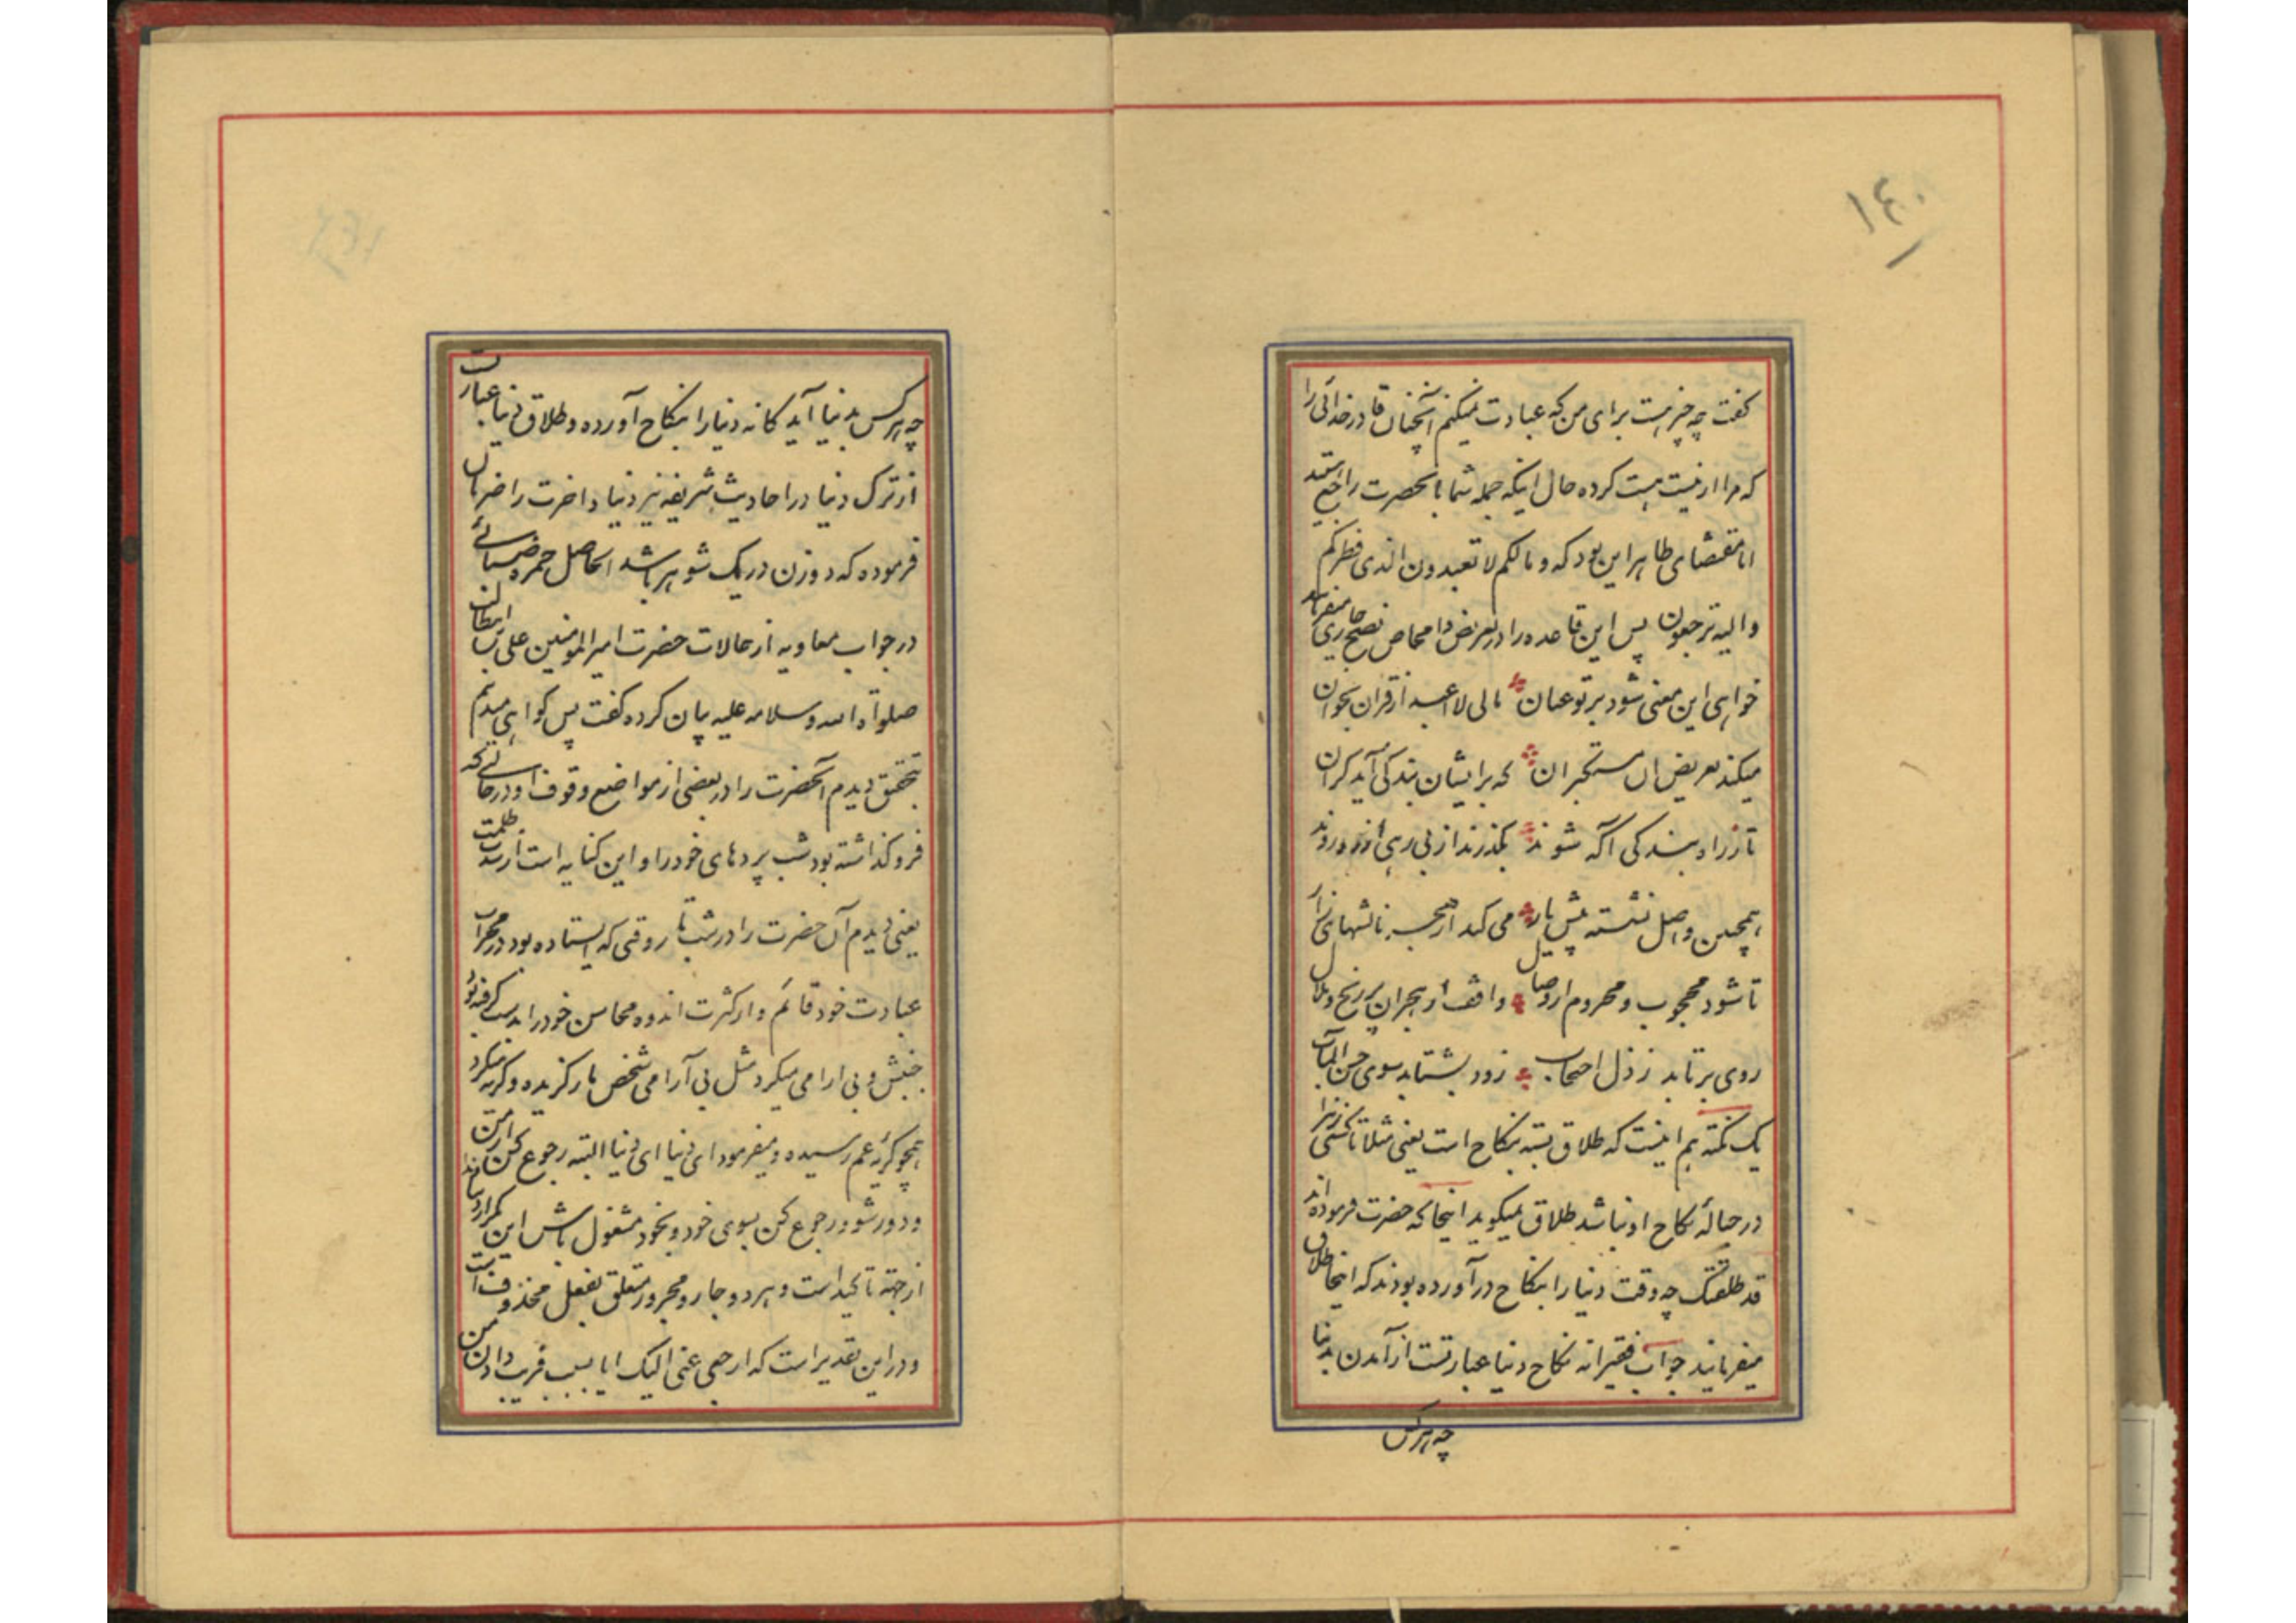 ١٤٠
گفت چه چیزیست برای من که عبادت نمیکنم آنچنان قادر خدائی را
که مرا از نیست هست کرده حال اینکه جمله شما بآنحضرت راجع هستید
اما مقتضای ظاهر این بود که و مالکم لا تعبدون الذی فطرکم
والیه ترجعون پس این قاعده را در تعریض نصیح میفرماید
خواهی این معنی شود بر تو عیان مالی لا اعبد از قران بخوان
میکند تعریض ان مستکبران که برایشان بندگی آید گران
تا ز راه بندگی آگه شوند بگذرند از بی رهی
همچنین واصل نشسته پیش یار می کند از هجر نالشهای زار
تا شود محجوب و محروم از وصال واقف از هجران پر رنج و ملال
روی بر تابد ز ذل احتجاب زود بشتابد سوی حسن المآب
یک نکته هم اینست که طلاق بسته بنکاح است یعنی مثلا تا کسی زنرا
در حبالهٔ نکاح او نباشد طلاق نمیگوید اینجا که حضرت فرموده‌اند
قد طلقتک چه وقت دنیا را بنکاح در آورده بودند که اینجا طلاق
میفرمایند جواب فقیرانه نکاح دنیا عبارتست از آمدن بدنیا
چه هر کس
چه هر کس بدنیا آید کانه دنیا را بنکاح آورده و طلاق دنیا عبارتست
از ترک دنیا در احادیث شریفه نیز دنیا و اخرت را ضرتان
فرموده که دو زن در یک شوهر باشد الحاصل حمزه ضبائی
در جواب معاویه از حالات حضرت امیرالمومنین علی بن ابیطالب
صلواة الله و سلامه علیه بیان کرده گفت پس گواهی میدهم
بتحقیق دیدم آنحضرت را در بعضی از مواضع وقوف او در حالتی که
فرو گذاشته بود شب پردهای خود را و این کنایه است از شدت ظلمت
یعنی دیدم آن حضرت را در شب تار وقتی که ایستاده بود در محراب
عبادت خود قائم و از کثرت اندوه محاسن خود را بدست گرفته بود
جنبش و بی ارامی میکرد مثل بی آرامی شخص مار گزیده و گریه میکرد
همچو گریه غم رسیده و میفرمود ای دنیا ای دنیا البته رجوع کن از من
و دور شو و رجوع کن بسوی خود و بخود مشغول باش این تکرار
از جهته تاکید است و هر دو جار و مجرور متعلق بفعل محذوف است
و در این تقدیر است که ارجعی عنی الیک ایا بسبب فریب دادن من